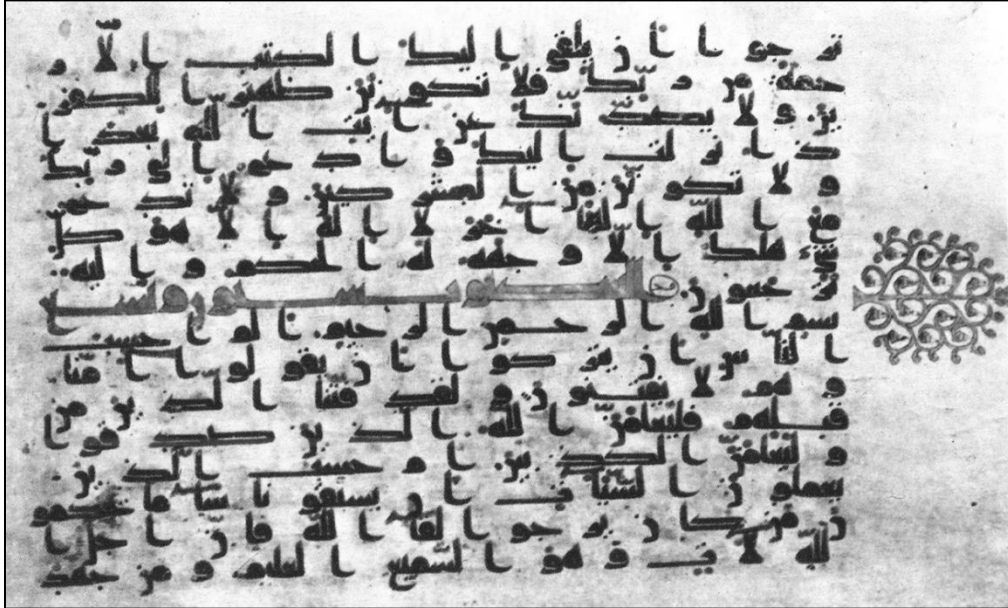 ترجوا ان يلقى اليك الكتب الا ر
حمة من ربك فلا تكونن ظهيرا للكفر
ين ولا يصدنك عن ايت الله بعد ا
ذ انزلت اليك وادع الى ربك
ولا تكونن من المشركين ولا تدع
مع الله الها اخر لا اله الا هو كل
شى هلك الا وجهه له الحكم واليه
ترجعون
بسم الله الرحمن الرحيم الم احسب
الناس ان يتركوا ان يقولوا امنا
وهم لا يفتنون ولقد فتنا الذين من
قبلهم فليعلمن الله الذين صدقوا
وليعلمن الكذبين ام حسب الذين
يعملون السيات ان يسبقونا سا ما يحكمو
ن من كان يرجوا لقا الله فان اجل ا
لله لات وهو السميع العليم ومن جهد